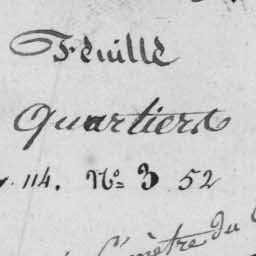 Feuille
Quartiers
114. N° 3 52
mètre du